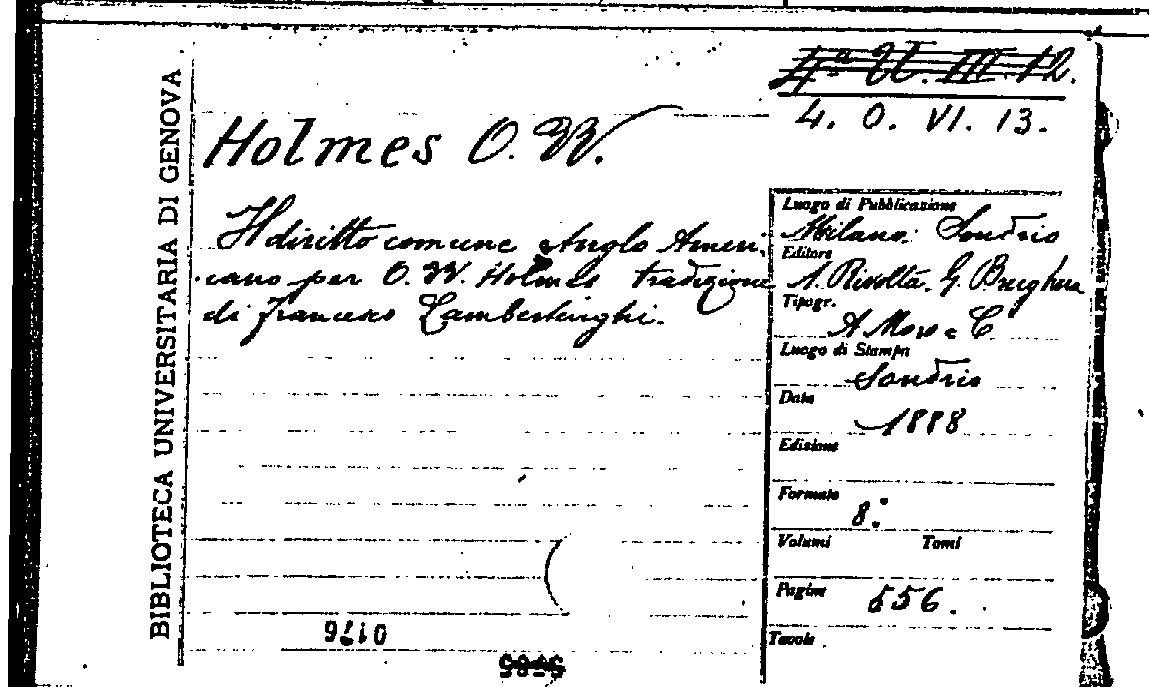 4ª U. III. 12.
4. O. VI. 13.
BIBLIOTECA UNIVERSITARIA DI GENOVA
Holmes O. W.
Il diritto comune Anglo Ameri-
cano per O. W. Holmes tradizione
di Francesco Lambertenghi.
Luogo di Pubblicazione
Milano: Sondrio
Editore
A. Rivolta. G.
Tipogr.
A. Moro e C
Luogo di Stampa
Sondrio
Data
1888
Edizione
Formato
8º
Volumi Tomi
Pagine
556.
Tavole
0176